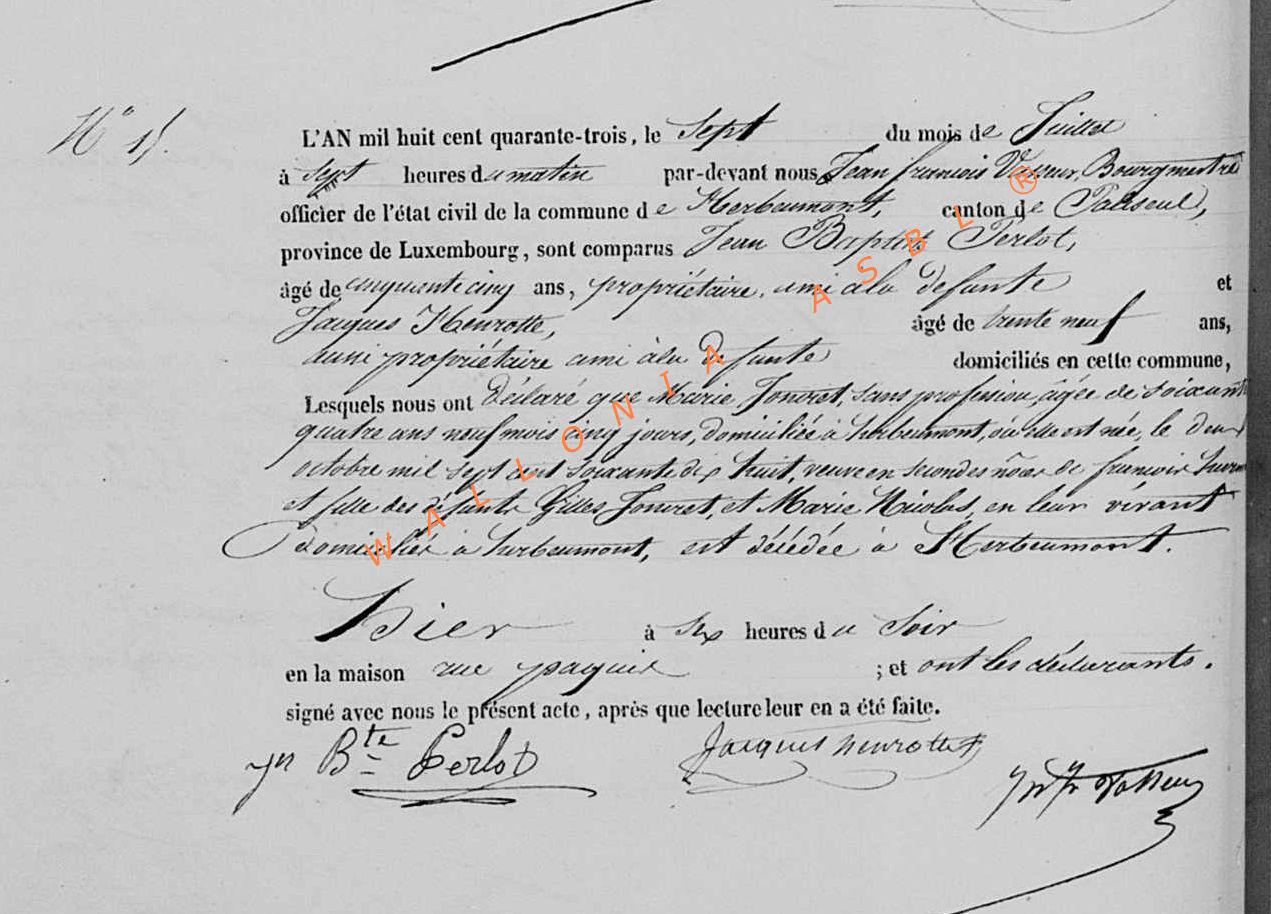 N° 15.
L'AN mil huit cent quarante-trois, le Sept du mois de Juillet
à Sept heures du matin par-devant nous Jean françois Bourgmestre
officier de l'état civil de la commune de Herbeumont, canton de Paliseul,
province de Luxembourg, sont comparus Jean Baptiste Perlot,
âgé de cinquante cinq ans, propriétaire, ami àla defunte et
Jacques Henrotte, âgé de trente neuf ans,
aussi propriétaire ami àla defunte domiciliés en cette commune,
Lesquels nous ont déclaré que Marie Jonvret, sans profession, âgée de soixante
quatre ans neuf mois cinq jours, domiciliée à herbeumont, où elle est née, le deux
octobre mil sept cent soixante dix huit, veuve en secondes nôces de françois
et fille des défunts Gilles Jonvret, et Marie Nicolas, en leur vivant
domiciliés à herbeumont, est décédée à Herbeumont.
hier à six heures du Soir
en la maison rue paquis ; et ont les déclarants.
signé avec nous le présent acte, après que lecture leur en a été faite.
Jn Bte Perlot Jacques henrotte
WALLONIA ASBL ®